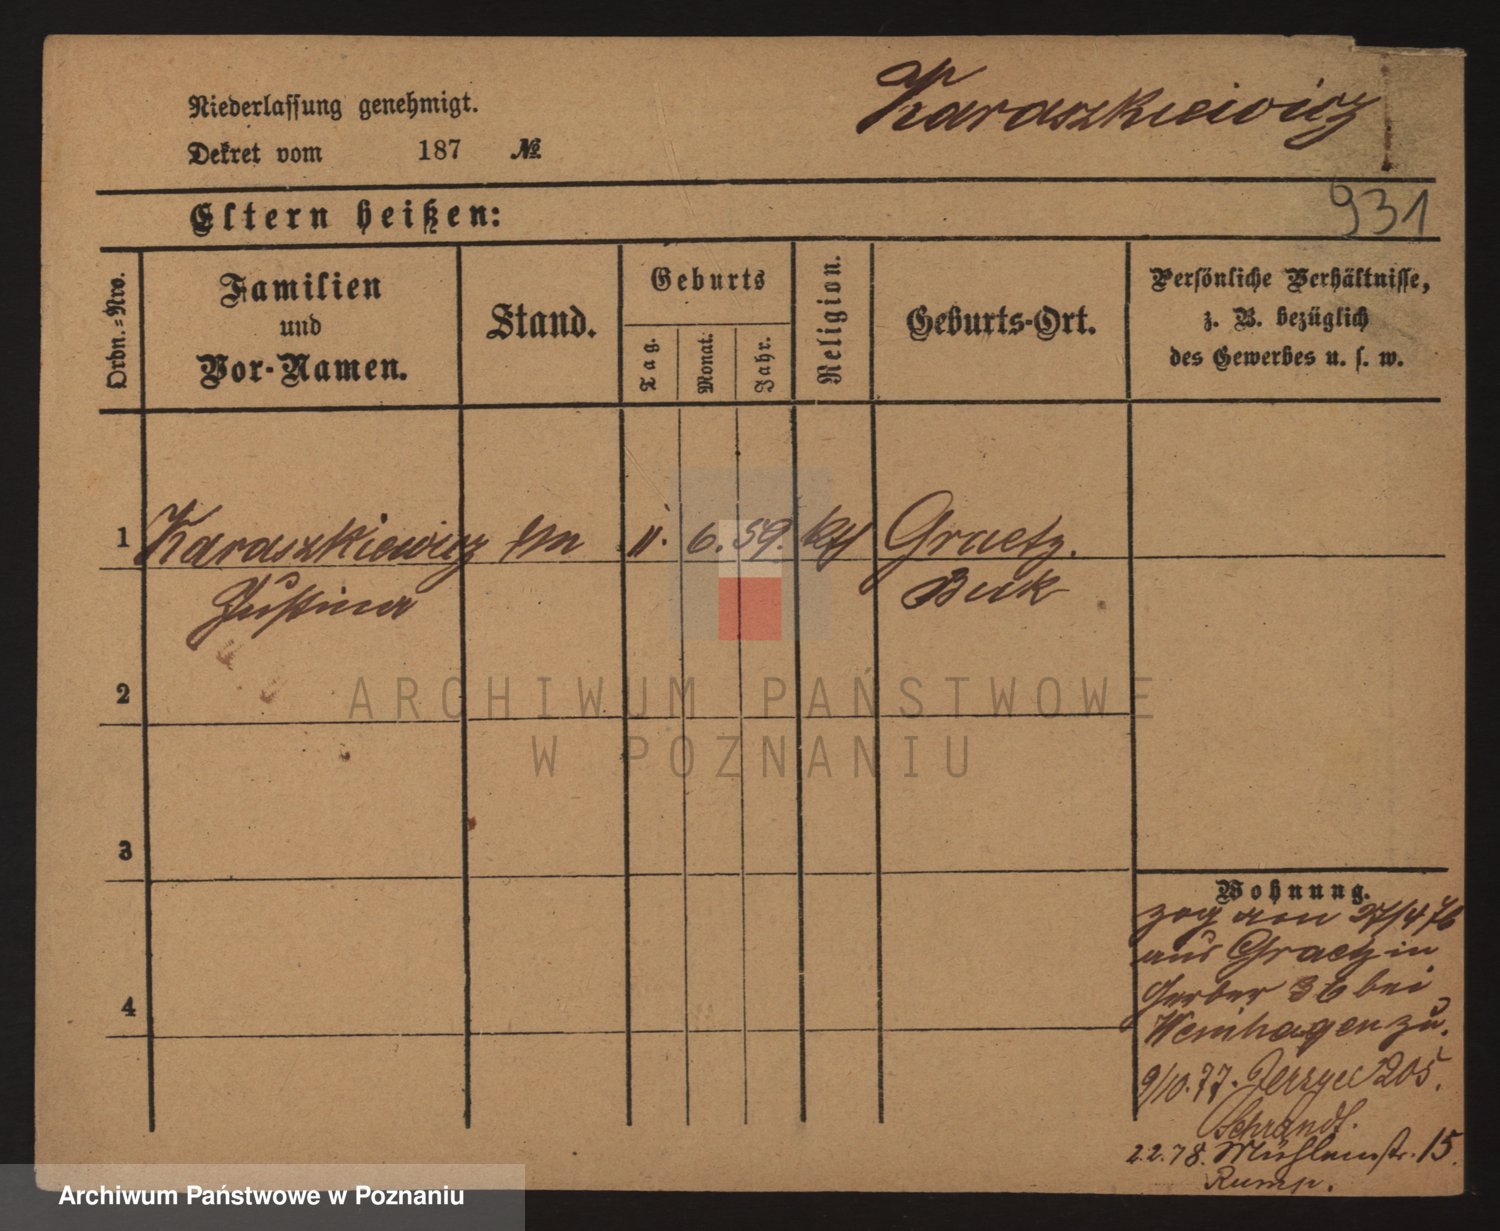 Karaszkiewicz
Niederlassung genehmigt.
Dekret vom 187 №
931
Eltern heißen:
Ordn.-Nro.
Familien
und
Vor-Namen.
Stand.
Geburts
Tag.
Monat.
Jahr.
Religion.
Geburts-Ort.
Persönliche Verhältnisse,
z. B. bezüglich
des Gewerbes u. s. w.
1 Karaszkiewicz 11. 6. 59. kth Graetz.
Justina Buk
2
3
4
Wohnung.
zog am 27/4 76
aus Graetz in
Gerber 36 bei
Weinhagen zu.
9/10.77. Jerzyce 205.
Schrandt.
2.2.78. Mühlenstr. 15.
Rump.
ARCHIWUM PAŃSTWOWE
W POZNANIU
Archiwum Państwowe w Poznaniu